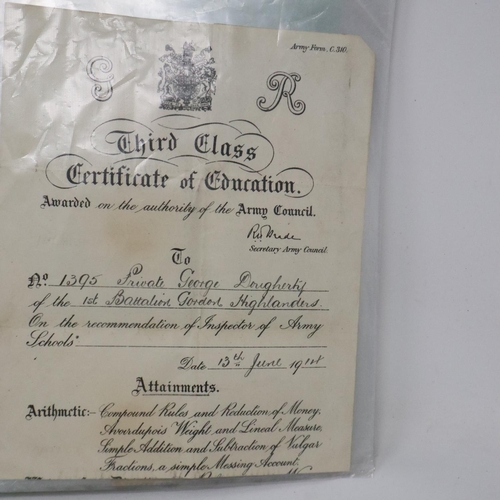 Army Form C. 310.
G R
Third Class
Certificate of Education.
Awarded on the authority of the Army Council.
Secretary Army Council
To
No. 1395 Private George Dougherty
of the 1st Battalion Gordon Highlanders
On the recommendation of Inspector of Army
Schools
Date 13th June 19
Attainments.
Arithmetic:- Compound Rules and Reduction of Money,
Avoirdupois Weight and Lineal Measure,
Simple Addition and Subtraction of Vulgar
Fractions, a simple Messing Account.